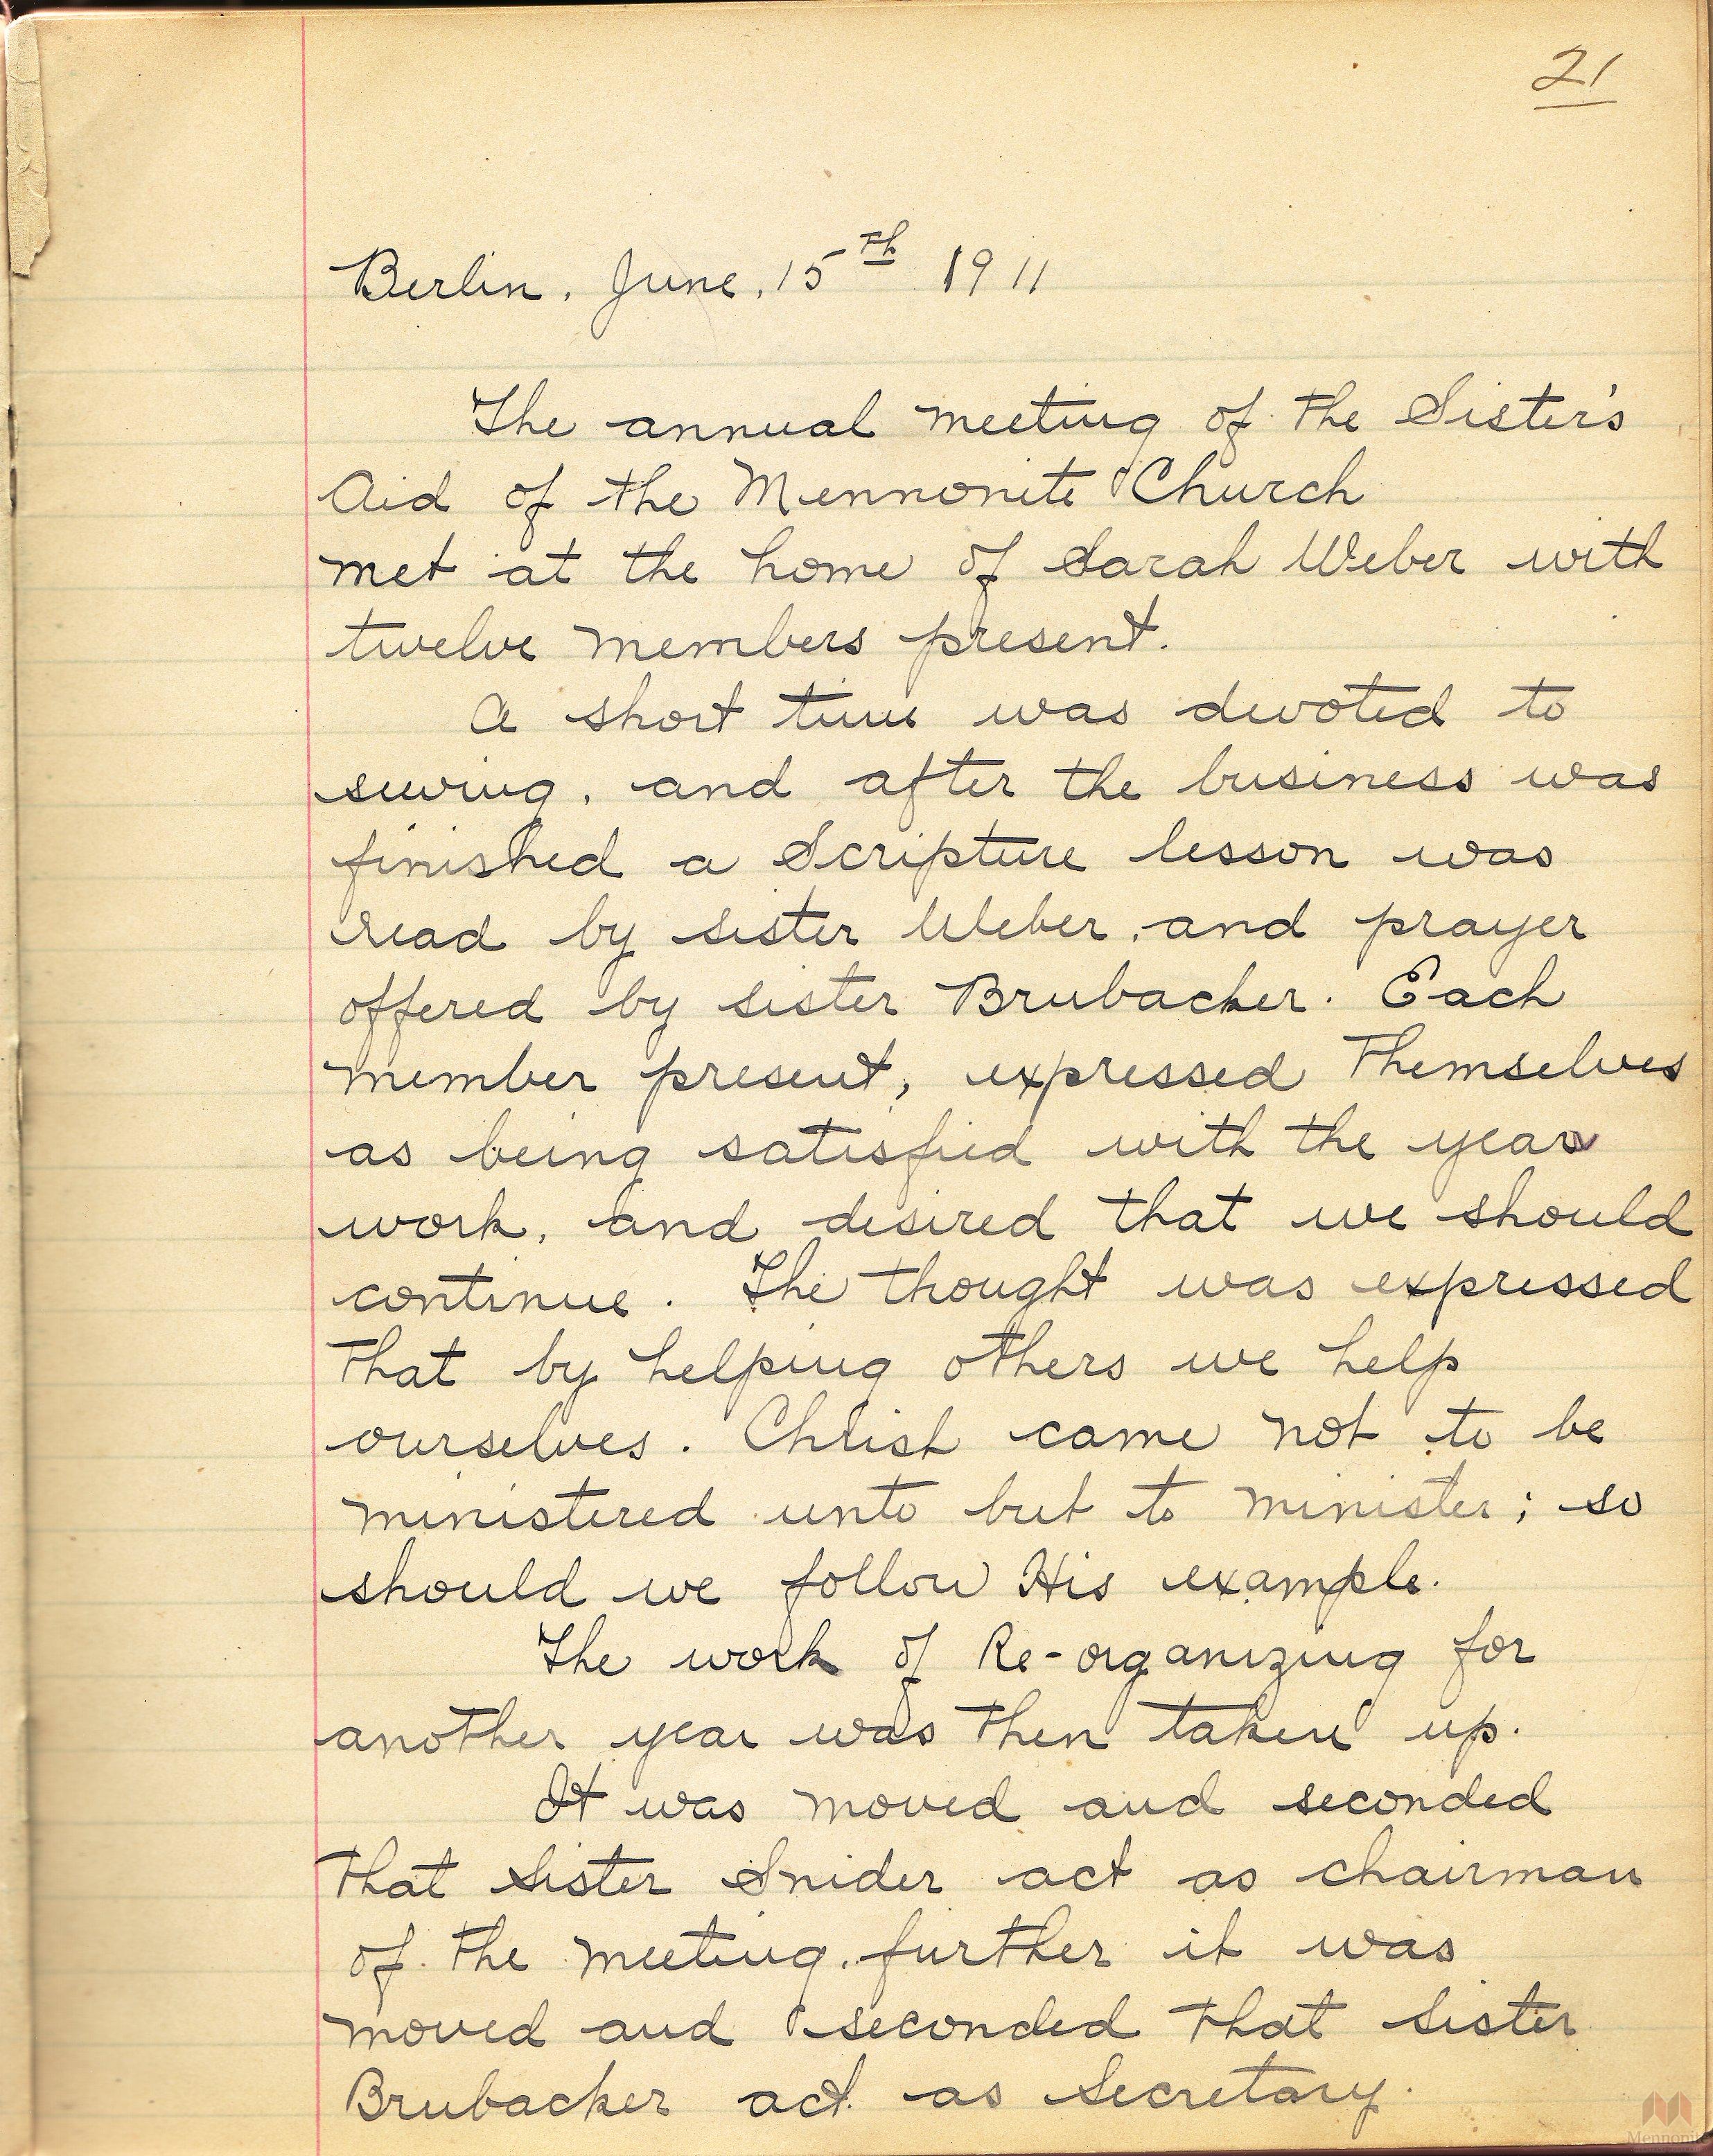 21
Berlin, June, 15th 1911
The annual meeting of the Sister's
Aid of the Mennonite Church
met at the home of Sarah Weber with
twelve members present.
A short time was devoted to
sewing, and after the business was
finished a Scripture lesson was
read by sister Weber, and prayer
offered by sister Brubacher. Each
member present, expressed themselves
as being satisfied with the years
work, and desired that we should
continue. The thought was expressed
that by helping others we help
ourselves. Christ came not to be
ministered unto but to minister; so
should we follow His example.
The work of Re-organizing for
another year was then taken up.
It was moved and seconded
that Sister Snider act as chairman
of the meeting, further it was
moved and seconded that Sister
Brubacher act as Secretary.
Mennonite